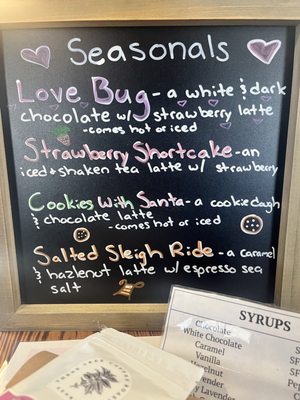 Seasonals
Love Bug - a white & dark
chocolate w/ strawberry latte
- comes hot or iced
Strawberry Shortcake - an
iced & shaken tea latte w/ strawberry
Cookies With Santa - a cookie dough
& chocolate latte
- comes hot or iced
Salted Sleigh Ride - a caramel
& hazlenut latte w/ espresso sea
salt
SYRUPS
Chocolate
White Chocolate
Caramel
Vanilla
SF
SF